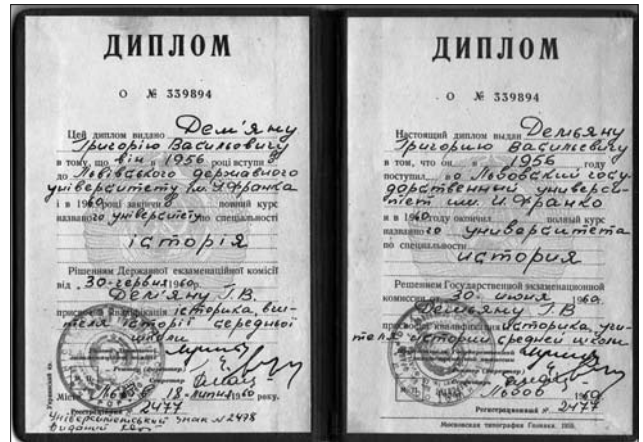 ДИПЛОМ
О № 339894
Цей диплом видано Дем'яну
Григорію Васильовичу
в тому, що він в 1956 році вступив
до Львівського державного
університету ім. І. Франка
і в 1960 році закінчив повний курс
названого університету по спеціальності
історія
Рішенням Державної екзаменаційної комісії
від „30" червня 1960 р.
Дем'яну Г. В.
кваліфікація історика, вчи-
теля історії середньої
школи
Місто Львів 18 липня 1960 року.
Реєстраційний № 2477
Університетський знак № 2478
виданий
ДИПЛОМ
О № 339894
Настоящий диплом выдан Демьяну
Григорию Васильевичу
в том, что он в 1956 году
поступил в Львовский госу-
дарственный универси-
тет им. И. Франко
и в 1960 году окончил полный курс
названного университета
по специальности
история
Решением Государственной экзаменационной
комиссии от „30" июня 1960 г.
Демьяну Г. В.
присвоена квалификация историка, учи-
теля истории средней школы
Львов 1960 г.
Регистрационный № 2477
Московская типография Гознака.